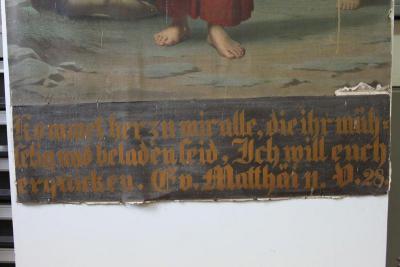 Kommet her zu mir alle, die ihr müh=
selig und beladen seid, Ich will euch
erquicken. Ev. Matthäi 11. V. 28.